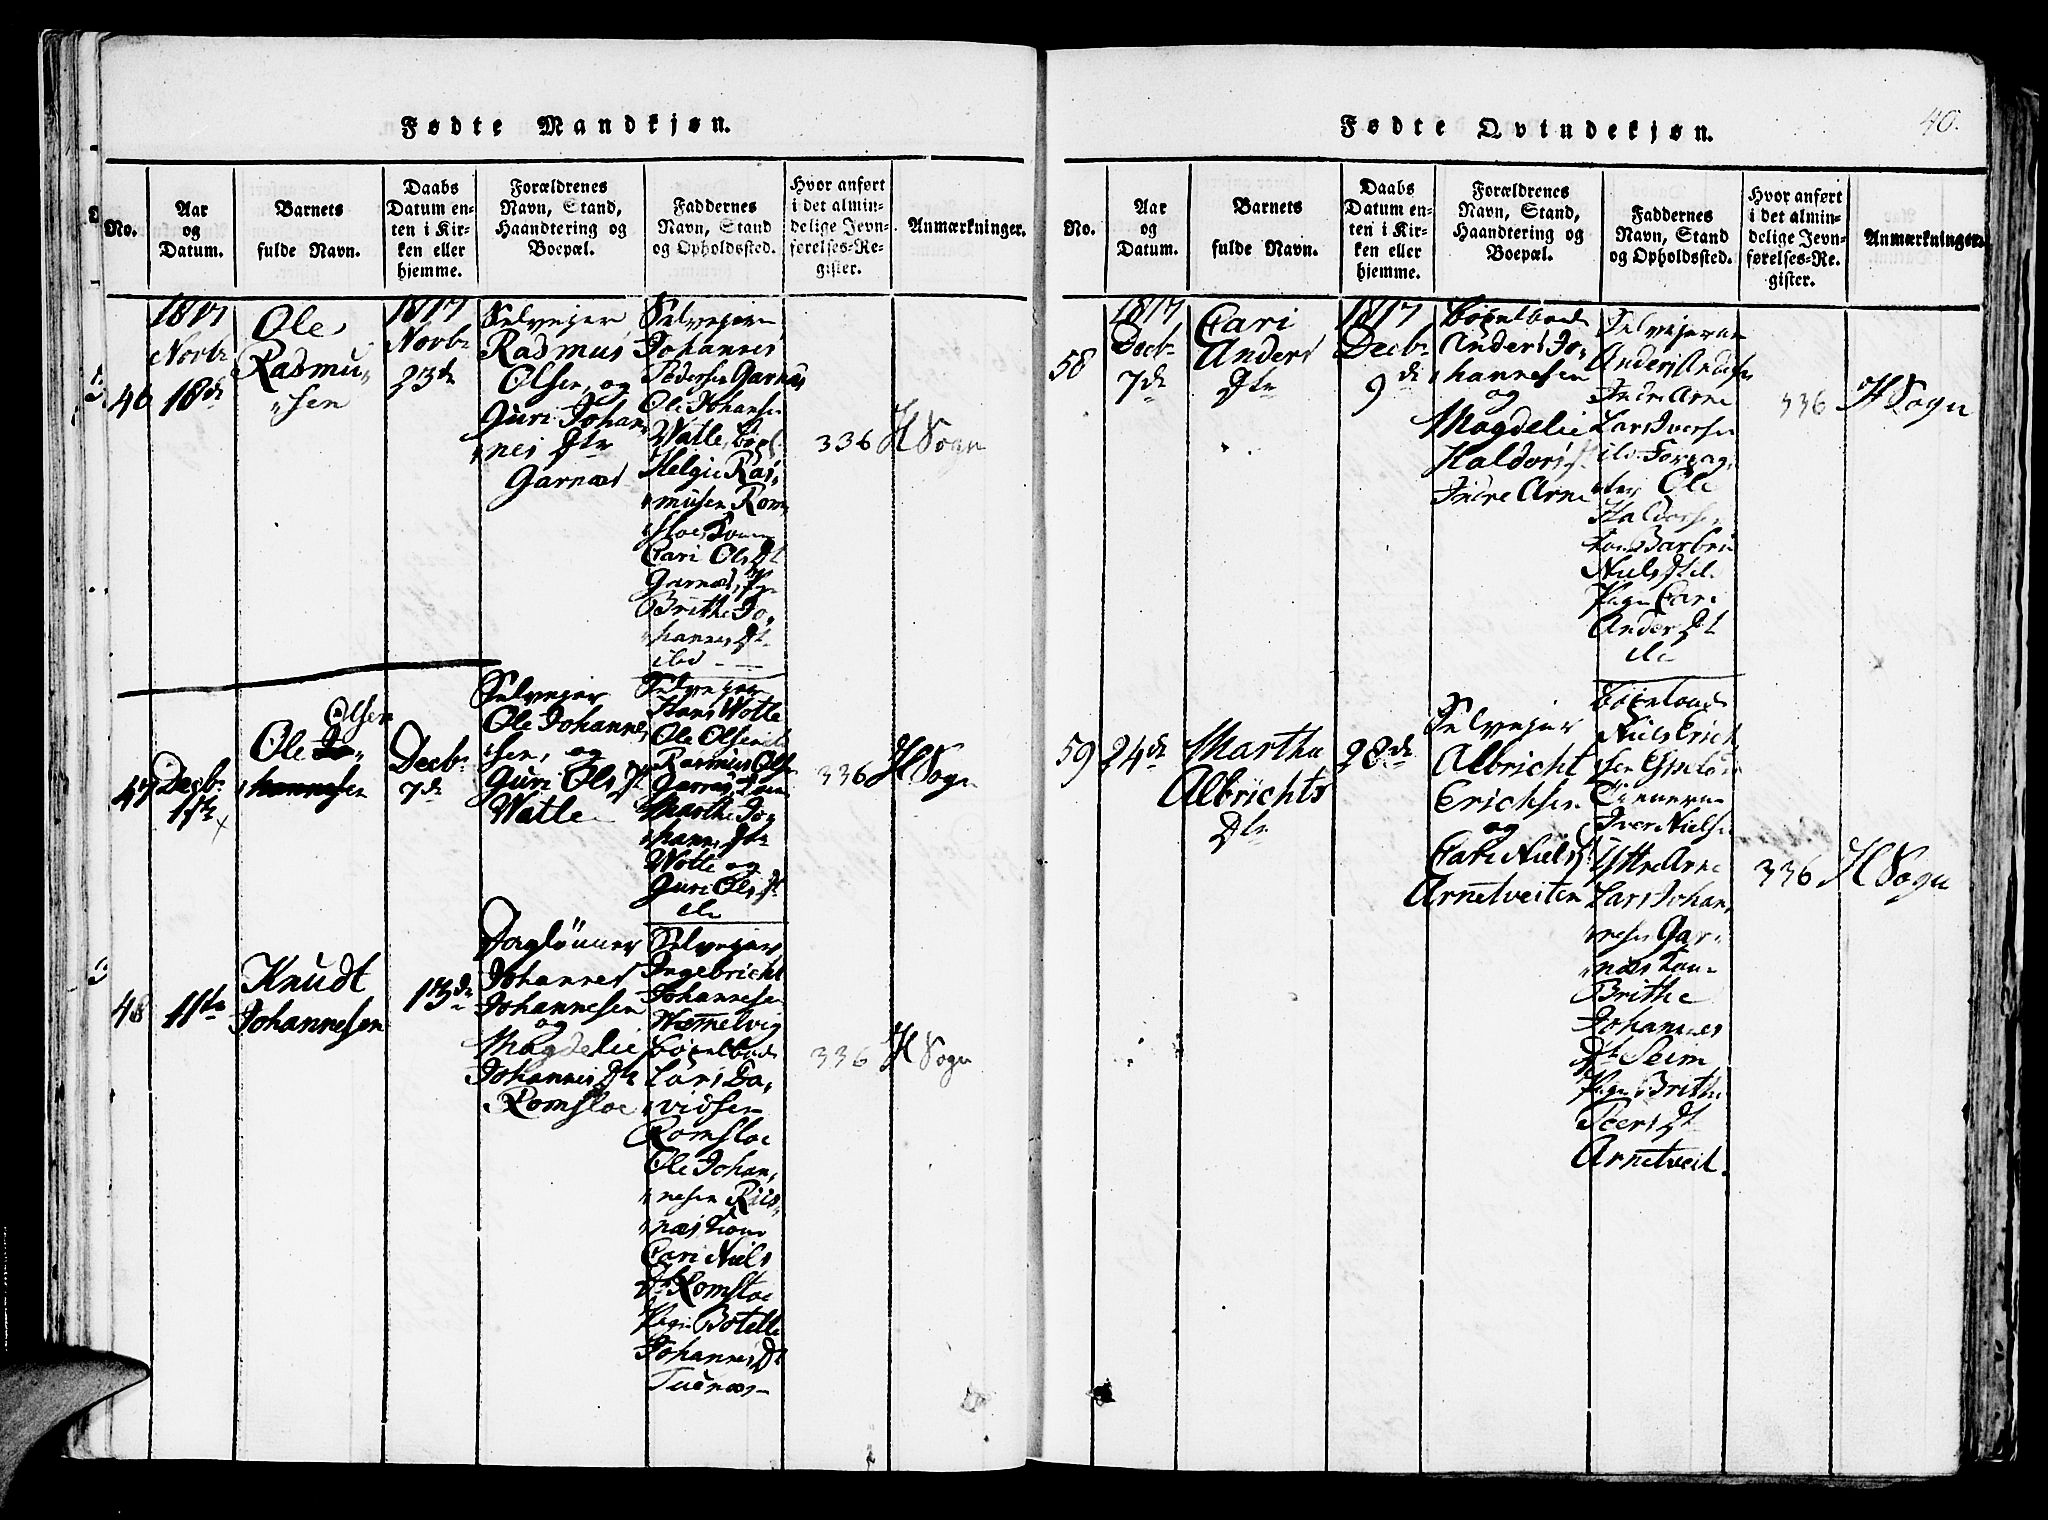 Fødte Mandkjøn.
No.
Aar
og
Datum.
Barnets
fulde Navn.
Daabs
Datum en-
ten i Kir-
ken eller
hjemme.
Forældrenes
Navn, Stand,
Haandtering og
Boepæl.
Faddernes
Navn, Stand
og Opholdssted.
Hvor anført
i det almin-
delige Jevn-
førelses-Re-
gister.
Anmærkninger.
46
1817
Novbr
18de
Ole
Rasmu„
„sen
1817
Novbr
23de
Selvejer
Rasmus
Olsen og
Guri Johan
„nes Dtr
Garnæs
Selvejer
Johannes
Pedersen Garnæs
Ole Johansen
Watle
Helgie Ras„
„musen Rom
„sloe Kone
Cari Ols Dt
Garnæs, P
Brithe Jo„
„hannes Dt
ibd
336
H Sogn
47
Decbr
1ste
Olsen
Ole Jo„
„hannesen
Decbr
7de
Selvejer
Ole Johanne
„sen, og
Guri Ols Dt
Watle
Selvejer
Hans Wotle
Ole Olsen
Rasmus Olse
Garnæs, Kone
Marthe Jo„
„hannes Dtr
Wotle og
Guri Ols Dt
336
H Sogn
48
11te
Knudt
Johannesen
13de
Daglönner
Johannes
Johannesen
og
Magdelie
Johannes Dtr
Romsloe
Selvejer
Ingebricht
Johannesen
Lars Da„
„vidsen
Romsloe
Ole Johan„
„nesen Riis„
„næs Kone
Cari Niels
Dt Romsloe
Pige Botelle
Johannes Dt
Tuenæs
336
H Sogn
Fødte Qvindekjøn.
40.
No.
Aar
og
Datum.
Barnets
fulde Navn.
Daabs
Datum en-
ten i Kir-
ken eller
hjemme.
Forældrenes
Navn, Stand,
Haandtering og
Boepæl.
Faddernes
Navn, Stand
og Opholdssted.
Hvor anført
i det almin-
delige Jevn-
førelses-Re-
gister.
Anmærkninger.
58
1817
Decbr
7de
Cari
Anders
Dtr
1817
Decbr
9de
Anders Jo„
„hannesen
og
Magdelie
Haldors
Indre Arne
Selvejerne
Anders Anders
Indre Arne
Lars Iversen
Ole
Haldorsen
Kone Barbro
Niels Dt
Pige Cari
Anders Dt
336
H Sogn
59
24de
Martha
Albrichts
Dtr
28de
Selvejer
Albricht
Erichsen
og
Cari Niels
Arnetveiten
Niels Erich
„sen Espeland
Iver Nielsen
Yttre Arne
Lars Johan„
„nesen Gar„
„næs Kone
Brithe
Johannes
Dt Seim
Pige Brithe
Peers Dt
Arnetveit.
336
H Sogn